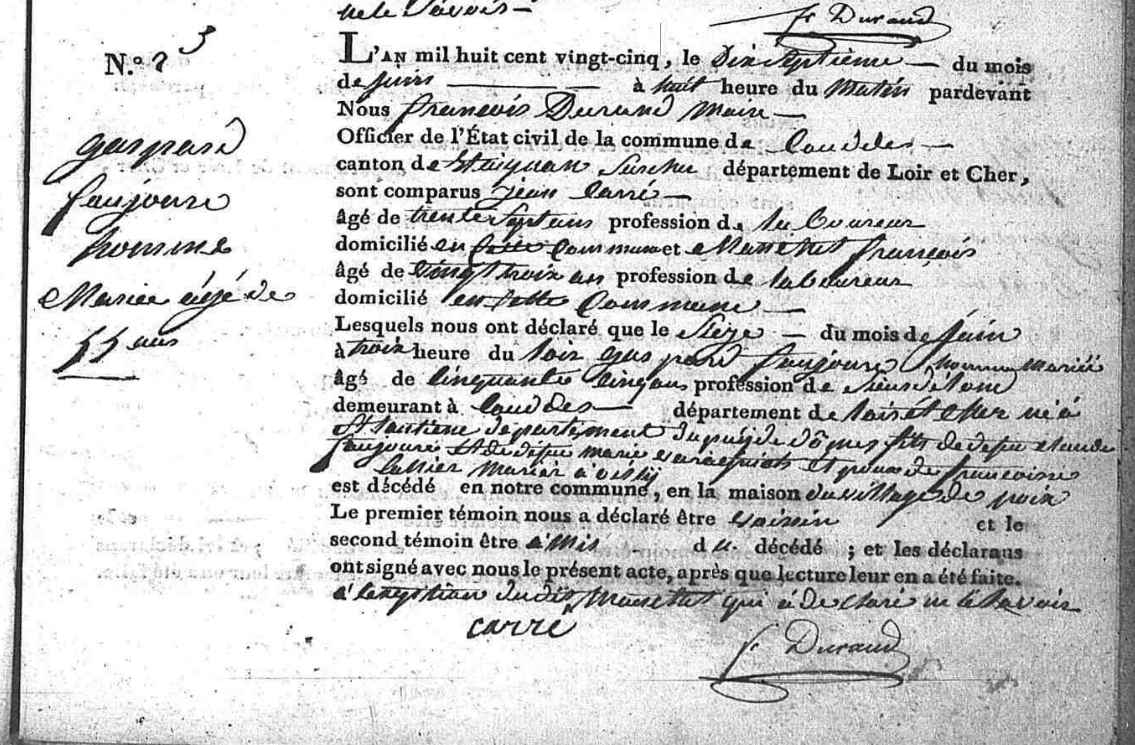 ne le Savoir —
fr Durand
N.° 3
gaspard
faujoure
homme
Mariée agé de
55 ans
L'AN mil huit cent vingt-cinq, le Dix septieme — du mois
de juin — à huit heure du Matin pardevant
Nous francois Durand Maire —
Officier de l'État civil de la commune de Couddes —
canton de St aignan Surcher département de Loir et Cher,
sont comparus jean Carré —
âgé de trente Sept ans profession de laboureur
domicilié en cette Commune et Manetet françois
âgé de vingt trois an profession de laboureur
domicilié en cette Commune —
Lesquels nous ont déclaré que le Seize — du mois de juin
à trois heure du Soir gaspard faujoure homme Mariéé
âgé de Cinquante Cinq ans profession de Sieur de lond
demeurant à Couddes — département de loir et cher né à
St département du puy de dômes fils de defeu claude
faujoure et de defeu marie et epoux de francoise
Marier à oisly
est décédé en notre commune, en la maison du village de
Le premier témoin nous a déclaré être voissin et le
second témoin être amis du décédé ; et les déclarans
ont signé avec nous le présent acte, après que lecture leur en a été faite.
à lexeption dudit Manetet qui à declaré ne le Savoir
carré
fr Durand